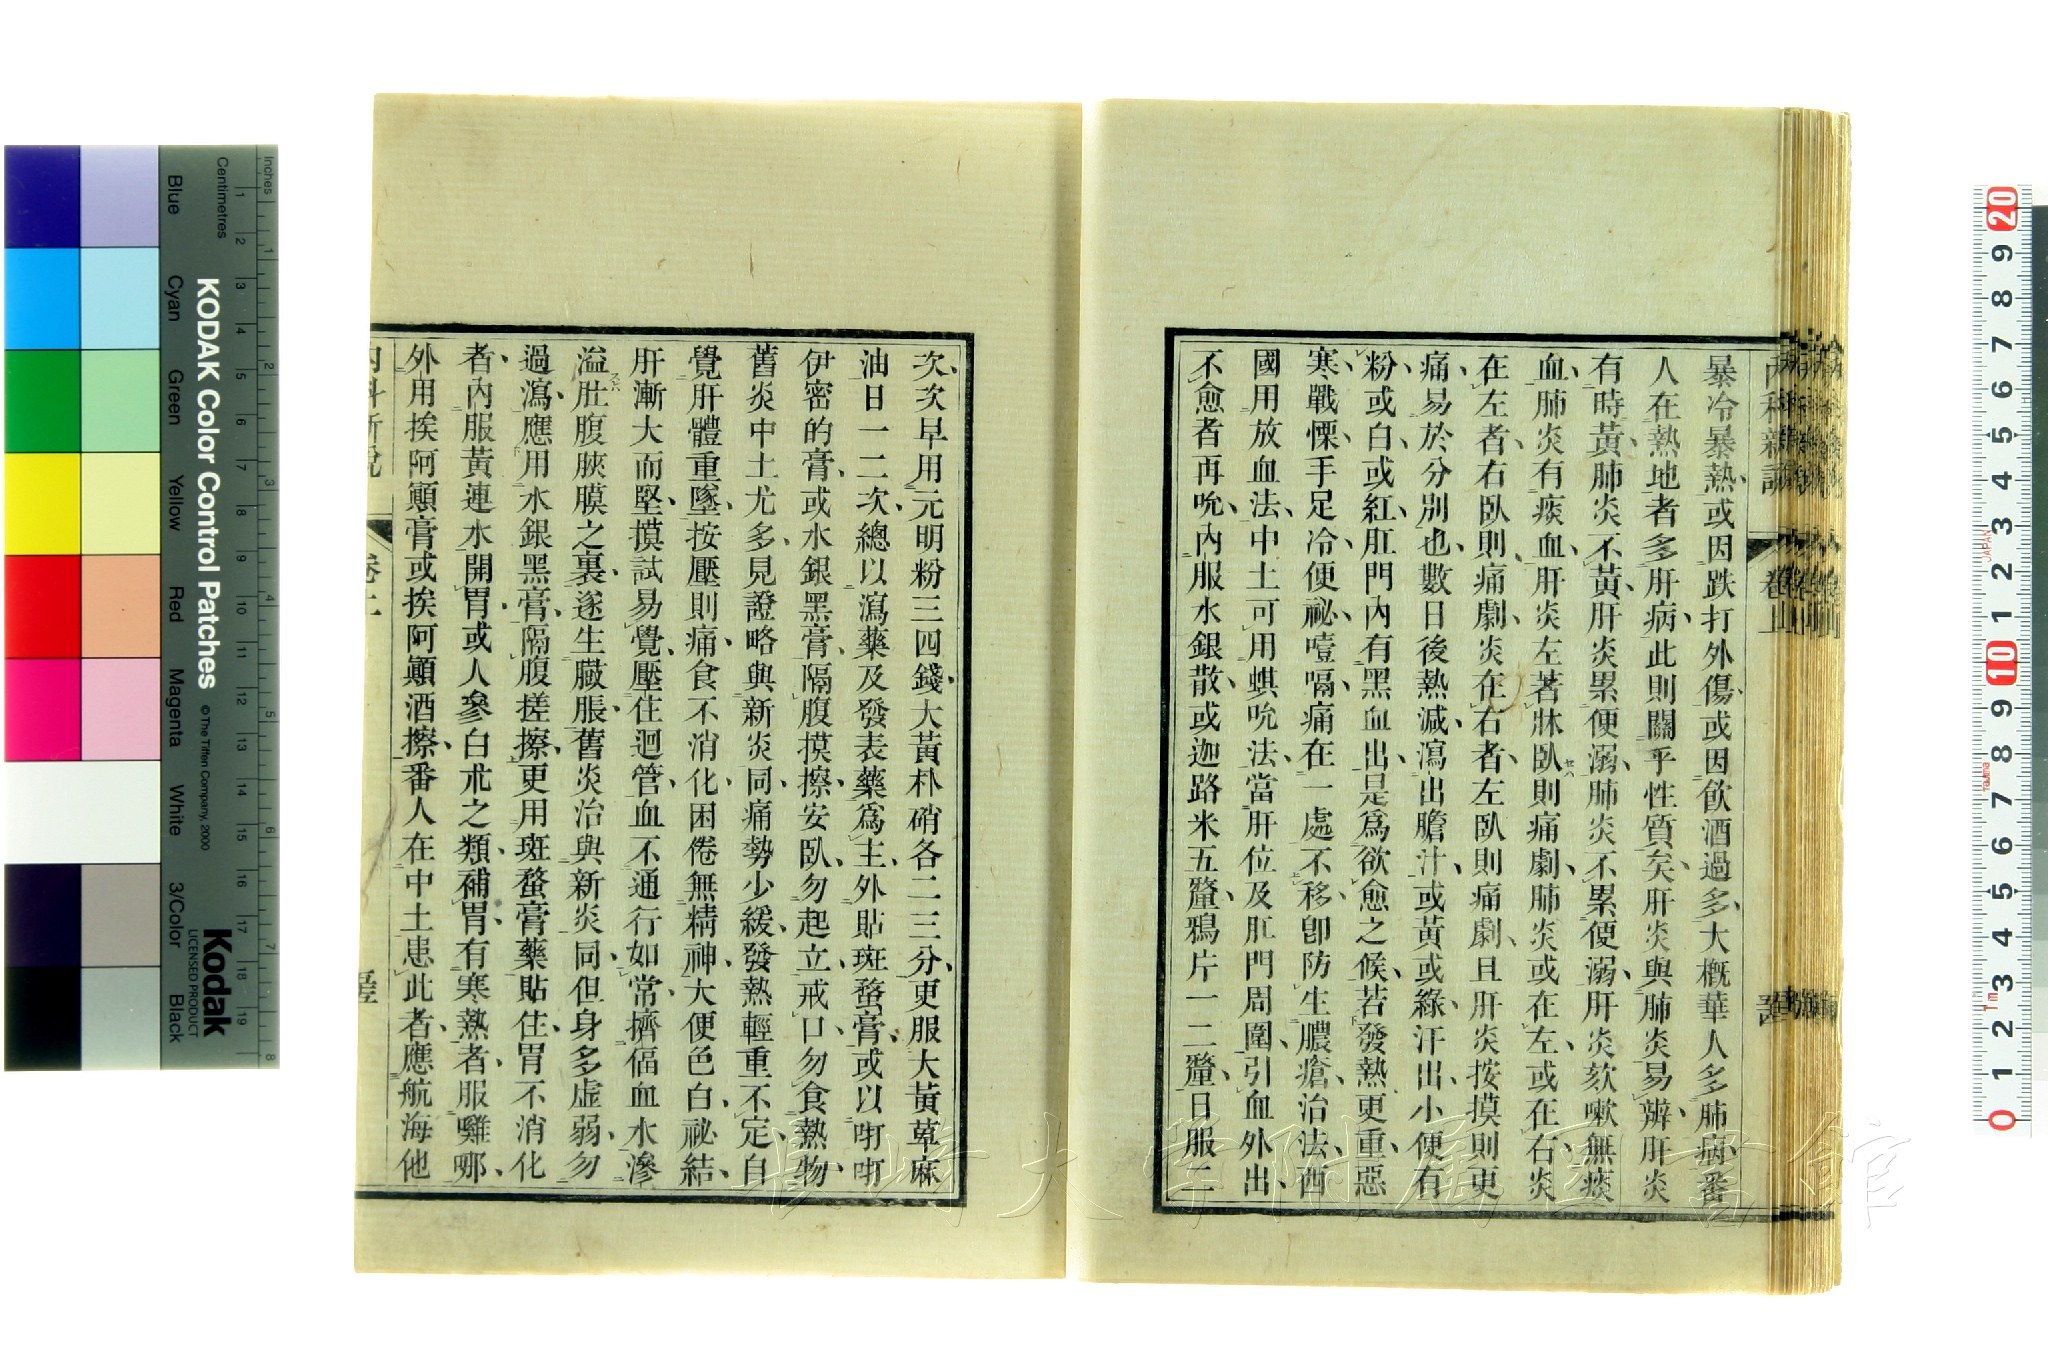 暴冷暴熱、或因跌打外傷、或因飮酒過多、大概華人多肺病、番
人在熱地者多肝病、此則關乎性質矣、肝炎與肺炎易辨、肝炎
有時黃、肺炎不黃、肝炎累便溺、肺炎不累便溺、肝炎欬嗽無痰
血、肺炎有痰血、肝炎左著牀臥則痛劇、肺炎或在左、或在右、炎
在左者、右臥則痛劇、炎在右者、左臥則痛劇、且肝炎按摸則更
痛、易於分別也、數日後熱減、瀉出膽汁、或黃或綠、汗出、小便有
粉、或白、或紅、肛門內有黑血出、是爲欲愈之候、若發熱更重、惡
寒、戰慄、手足冷、便祕、噎嗝、痛在一處不移、卽防生膿瘡、治法、西
國用放血法、中土可用蜞吮法、當肝位及肛門周圍、引血外出、
不愈者再吮、內服水銀散、或迦路米五釐、鴉片一二釐、日服二
內科新說
卷上
次、次早用元明粉三四錢、大黃朴硝各二三分、更服大黃萆麻
油日一二次、總以瀉藥及發表藥爲主、外貼斑蝥膏、或以㕶㕶
伊密的膏、或水銀黑膏、隔腹摸擦、安臥、勿起立、戒口、勿食熱物、
舊炎中土尤多、見證略與新炎同、痛勢少緩、發熱輕重不定、自
覺肝體重墜、按壓則痛、食不消化、困倦無精神、大便色白、祕結、
肝漸大而堅、摸試易覺、壓住迴管、血不通行如常、擠偪血水滲
溢肚腹脥膜之裏、遂生臌脹、舊炎治與新炎同、但身多虛弱、勿
過瀉、應用水銀黑膏、隔腹搓擦、更用斑蝥膏藥貼住、胃不消化
者、內服黃連水開胃、或人參白朮之類補胃、有寒熱者、服囄哪、
外用挨阿顚膏或挨阿顚酒擦、番人在中土患此者、應航海他
內科新說
卷上